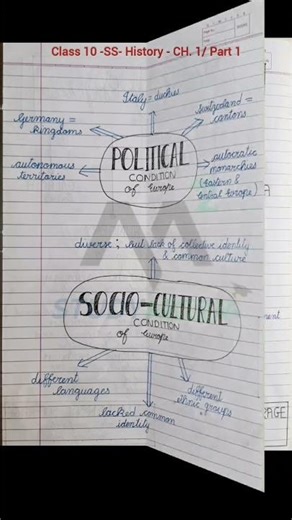 Class 10 -SS- History - CH. 1/ Part 1
Italy = duchies
Germany =
kingdoms
Switzerland =
cantons
POLITICAL
CONDITION
of Europe
autonomous
territories
autocratic
monarchies
(Eastern &
Central Europe)
diverse ; but lack of collective identity
& common culture
SOCIO-CULTURAL
CONDITION
of Europe
different
languages
lacked common
identity
different
ethnic groups